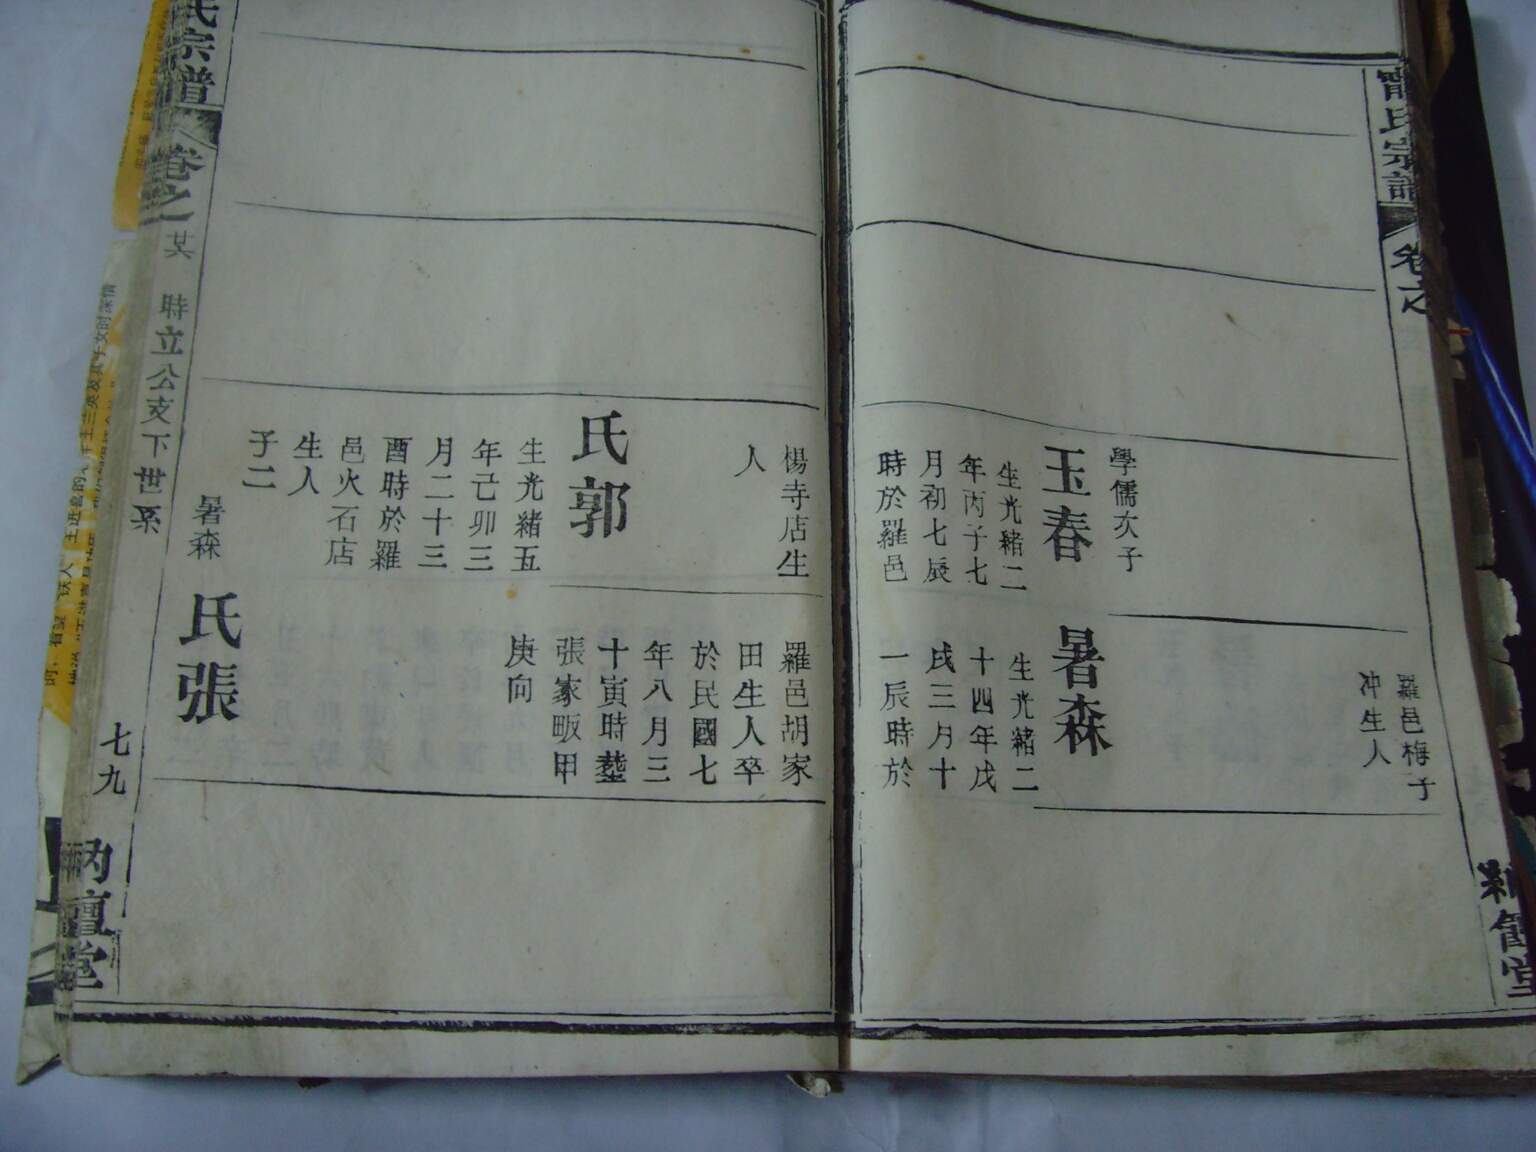 甯氏宗譜
卷之
學儒次子
玉春
生光緒二
年丙子七
月初七辰
時於羅邑
楊寺店生
人
氏郭
生光緒五
年己卯三
月二十三
酉時於羅
邑火石店
生人
子二
暑森
羅邑梅子
冲生人
暑森
生光緒二
十四年戊
戌三月十
一辰時於
羅邑胡家
田生人卒
於民國七
年八月三
十寅時塟
張家畈甲
庚向
氏張
氏宗譜
卷之
時立公支下世系
七九
堂